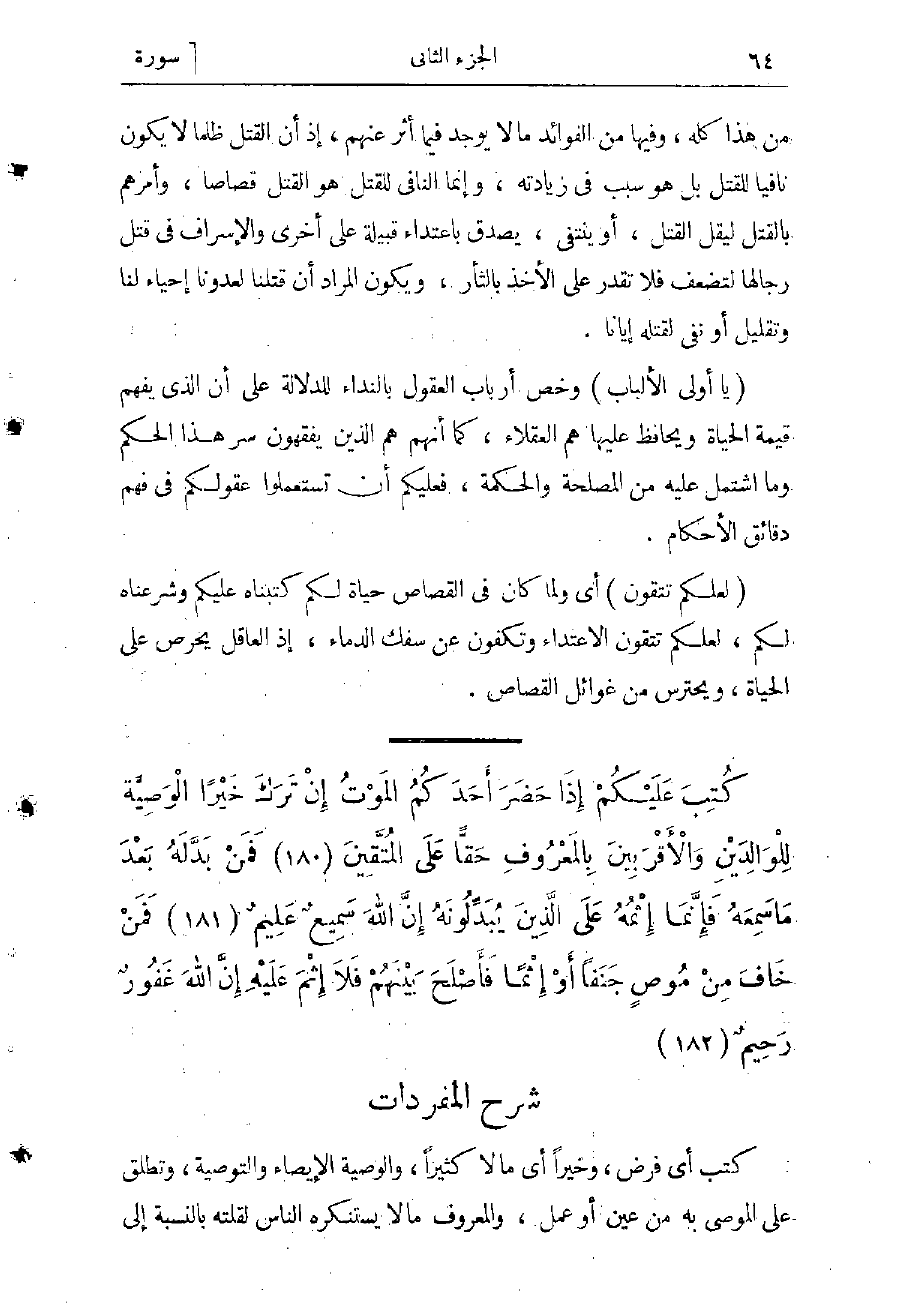 ٦٤ الجزء الثانى [ سورة
من هذا كله ، وفيها من الفوائد مالا يوجد فيما أثر عنهم ، إذ أن القتل ظلما لا يكون
نافيا للقتل بل هو سبب فى زيادته ، وإنما النافى للقتل هو القتل قصاصا ، وأمرهم
بالقتل ليقل القتل ، أو ينتفى ، يصدق باعتداء قبيلة على أخرى والإسراف فى قتل
رجالها لتضعف فلا تقدر على الأخذ بالثأر ، ويكون المراد أن قتلنا لعدونا إحياء لنا
وتقليل أو نفى لقتله إيانا .
( يا أولى الألباب ) وخص أرباب العقول بالنداء للدلالة على أن الذى يفهم
قيمة الحياة ويحافظ عليها هم العقلاء ، كما أنهم هم الذين يفقهون سر هذا الحكم
وما اشتمل عليه من المصلحة والحكمة ، فعليكم أن تستعملوا عقولكم فى فهم
دقائق الأحكام .
( لعلكم تتقون ) أى ولما كان فى القصاص حياة لكم كتبناه عليكم وشرعناه
لكم ، لعلكم تتقون الاعتداء وتكفون عن سفك الدماء ، إذ العاقل يحرص على
الحياة ، ويحترس من غوائل القصاص .
كُتِبَ عَلَيْكُمْ إِذَا حَضَرَ أَحَدَكُمُ الْمَوْتُ إِنْ تَرَكَ خَيْرًا الْوَصِيَّةُ
لِلْوَالِدَيْنِ وَالْأَقْرَبِينَ بِالْمَعْرُوفِ حَقًّا عَلَى الْمُتَّقِينَ (١٨٠) فَمَنْ بَدَّلَهُ بَعْدَ
مَا سَمِعَهُ فَإِنَّمَا إِثْمُهُ عَلَى الَّذِينَ يُبَدِّلُونَهُ إِنَّ اللهَ سَمِيعٌ عَلِيمٌ (١٨١) فَمَنْ
خَافَ مِنْ مُوصٍ جَنَفًا أَوْ إِثْمًا فَأَصْلَحَ بَيْنَهُمْ فَلَا إِثْمَ عَلَيْهِ إِنَّ اللهَ غَفُورٌ
رَحِيمٌ (١٨٢)
شرح المفردات
كتب أى فرض ، وخيراً أى مالا كثيراً ، والوصية الإيصاء والتوصية ، وتطلق
على الموصى به من عين أو عمل ، والمعروف مالا يستنكره الناس لقلته بالنسبة إلى